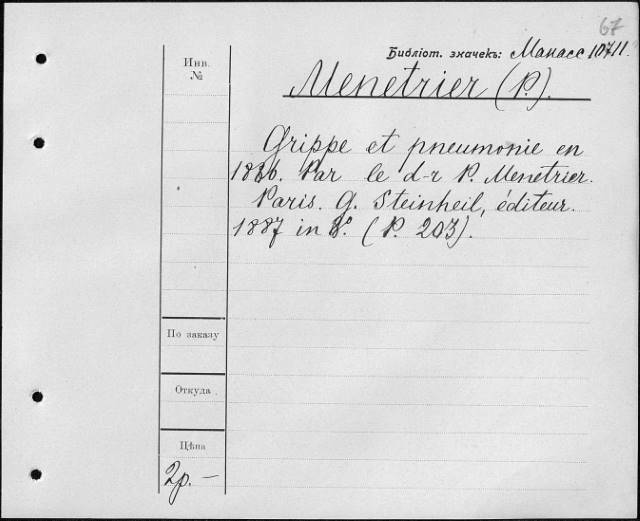 67
Библіот. значекъ: Манасс 10711.
Инв.
№
Menetrier (P.).
Grippe et pneumonie en
1886. Par le d-r P. Menetrier.
Paris. G. Steinheil, éditeur.
1887 in 8°. (P. 203).
По заказу
Откуда
Цѣна
2р. —